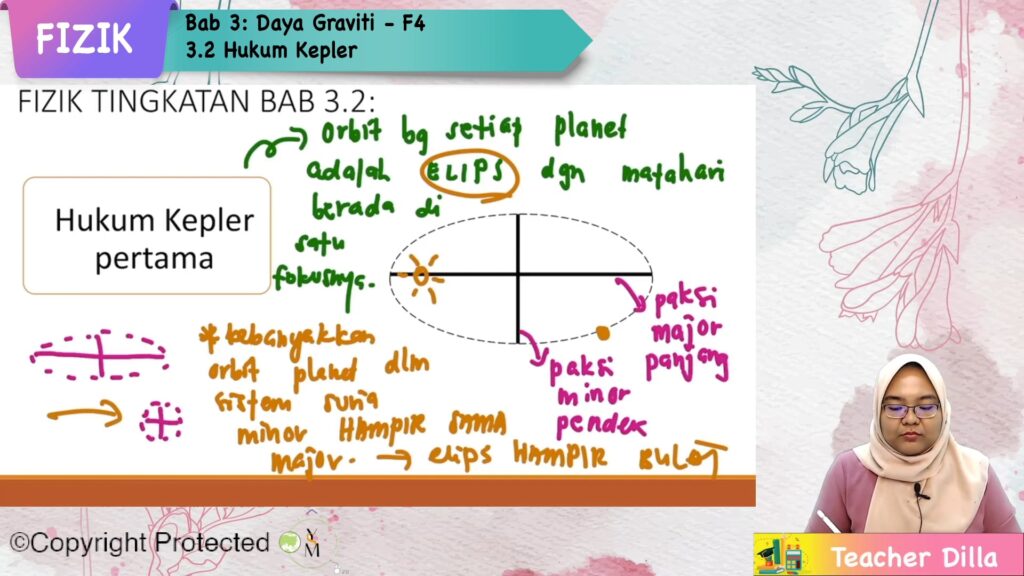 FIZIK
Bab 3: Daya Graviti - F4
3.2 Hukum Kepler
FIZIK TINGKATAN BAB 3.2:
Hukum Kepler
pertama
orbit bg setiap planet
adalah ELIPS dgn matahari
berada di
satu
fokusnya.
paksi
major
panjang
paksi
minor
pendek
* kebanyakkan
orbit planet dlm
sistem suria
minor HAMPIR SAMA
major. → elips HAMPIR BULAT
©Copyright Protected
M
Teacher Dilla